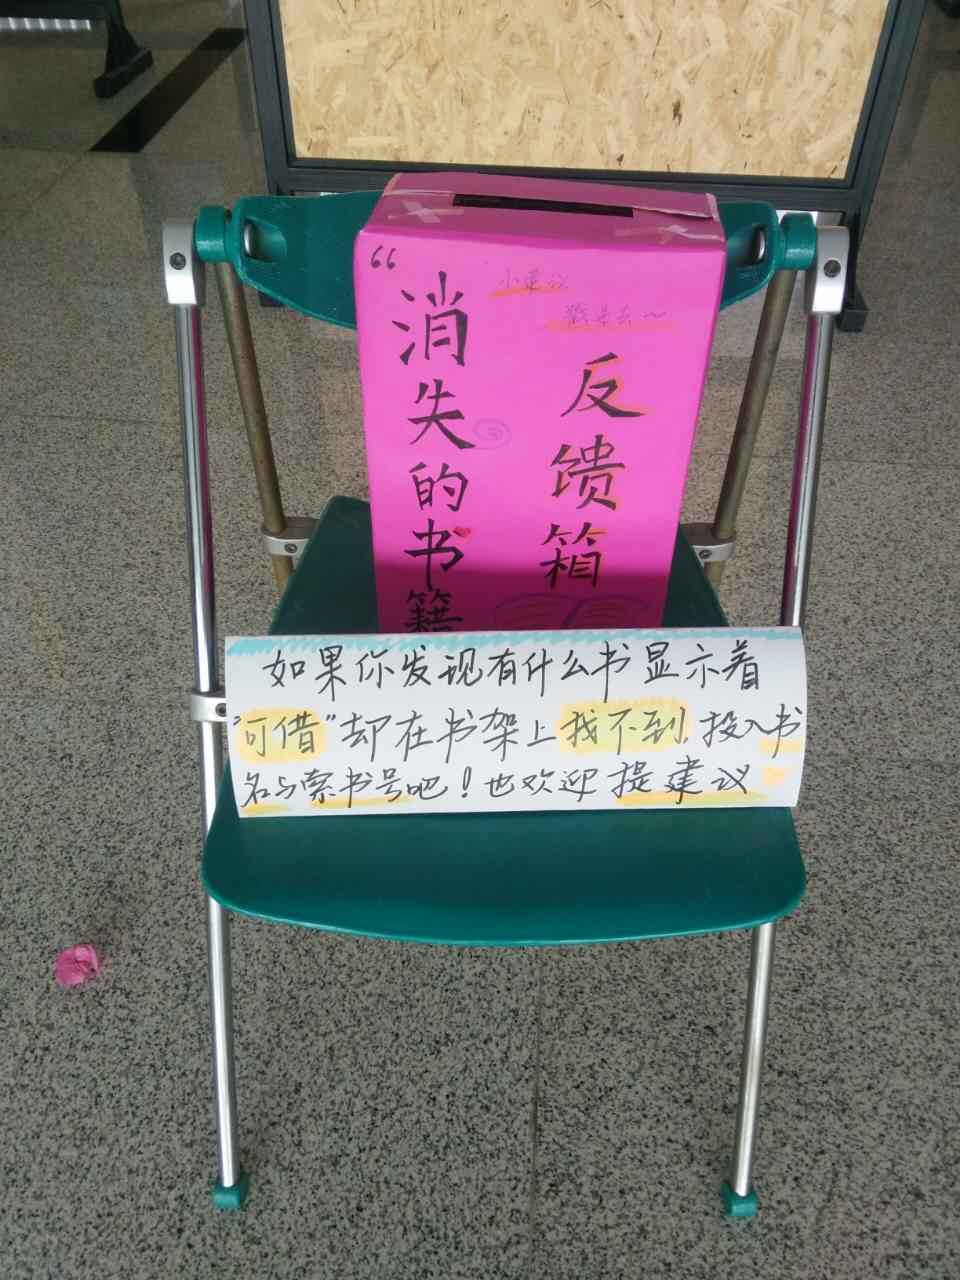 “消失的书籍
小建议
反馈箱
如果你发现有什么书显示着
“可借”却在书架上找不到,投入书
名与索书号吧！也欢迎提建议